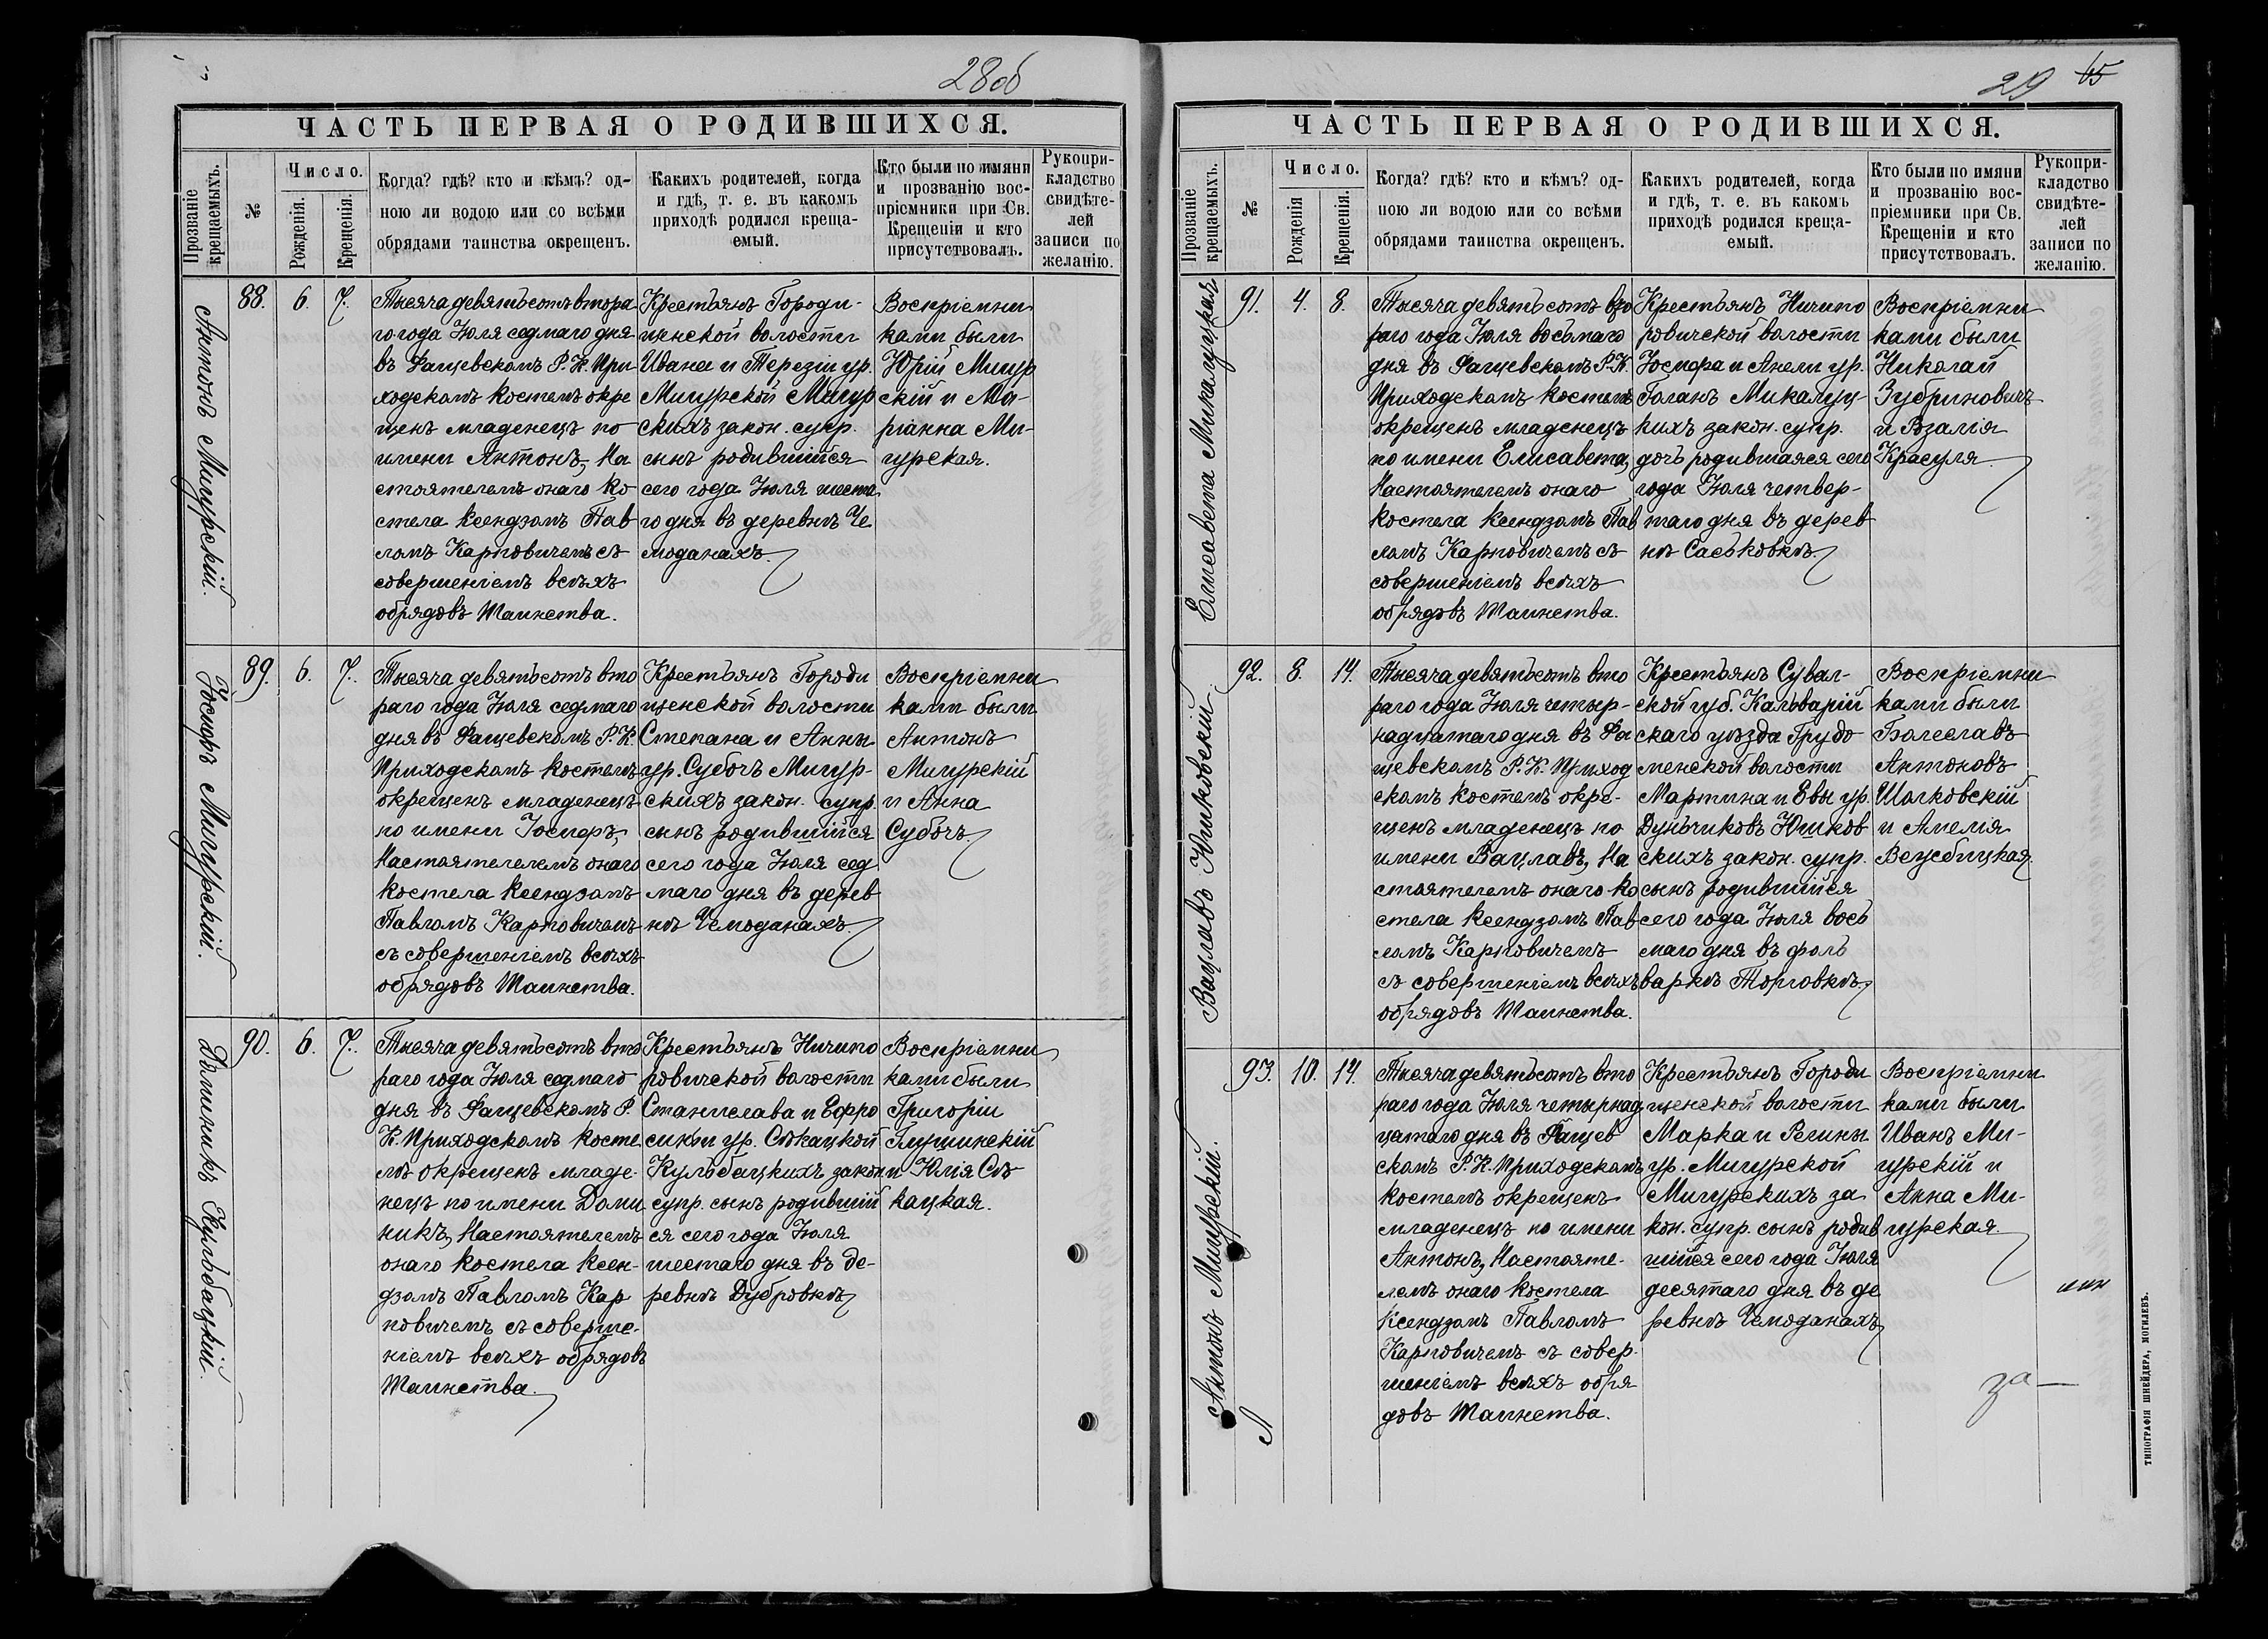 28об
ЧАСТЬ ПЕРВАЯ О РОДИВШИХСЯ.
Прозваніе крещаемыхъ.
№
Число.
Рожденія.
Крещенія.
Когда? гдѣ? кто и кѣмъ? од-
ною ли водою или со всѣми
обрядами таинства окрещенъ.
Какихъ родителей, когда
и гдѣ, т. е. въ какомъ
приходѣ родился креща-
емый.
Кто были по имяни
и прозванію вос-
пріемники при Св.
Крещеніи и кто
присутствовалъ.
Рукопри-
кладство
свидѣте-
лей
записи по
желанію.
Антонъ Мигурскій.
88.
6.
7.
Тысяча девятьсотъ втора
го года Іюля седмаго дня
въ Фащевскомъ Р. К. При
ходскомъ костелѣ окре
щенъ младенецъ по
имени Антонъ, На
стоятелемъ онаго ко
стела ксендзомъ Пав
ломъ Карповичемъ съ
совершеніемъ всѣхъ
обрядовъ Таинства.
Крестьянъ Городи-
щенской волости
Ивана и Терезіи ур.
Мигурской Мигур
скихъ закон. супр.
сынъ родившійся
сего года Іюля шеста
го дня въ деревнѣ Че
моданахъ.
Воспріемни
ками были
Юрій Мигур
скій и Ма-
ріанна Ми-
гурская.
Іосифъ Мигурскій.
89.
6.
7.
Тысяча девятьсотъ вто
раго года Іюля седмаго
дня въ Фащевскомъ Р. К.
Приходскомъ костелѣ
окрещенъ младенецъ
по имени Іосифъ,
Настоятелемъ онаго
костела ксендзомъ
Павломъ Карповичемъ
съ совершеніемъ всѣхъ
обрядовъ Таинства.
Крестьянъ Городи
щенской волости
Степана и Анны
ур. Субочъ Мигур-
скихъ закон. супр.
сынъ родившійся
сего года Іюля сед
маго дня въ дерев
нѣ Чемоданахъ.
Воспріемни
ками были
Антонъ
Мигурскій
и Анна
Субочъ.
Доминикъ Кульбацкій.
90.
6.
7.
Тысяча девятьсотъ вто
раго года Іюля седмаго
дня въ Фащевскомъ Р.
К. Приходскомъ косте
лѣ окрещенъ младе-
нецъ по имени Доми
никъ, Настоятелемъ
онаго костела ксен-
дзомъ Павломъ Кар
повичемъ съ соверше-
ніемъ всѣхъ обрядовъ
Таинства.
Крестьянъ Ничипо
ровичской волости
Станислава и Ефро
сикіи ур. Сѣкацкой
Кульбацкихъ закон
супр. сынъ родившій
ся сего года Іюля
шестаго дня въ де-
ревнѣ Дубровкѣ
Воспріемни
ками были
Григорій
Глушинскій
и Юлія Сѣ
кацкая.
29 65
ЧАСТЬ ПЕРВАЯ О РОДИВШИХСЯ.
Прозваніе крещаемыхъ.
№
Число.
Рожденія
Крещенія.
Когда? гдѣ? кто и кѣмъ? од-
ною ли водою или со всѣми
обрядами таинства окрещенъ.
Какихъ родителей, когда
и гдѣ, т. е. въ какомъ
приходѣ родился креща-
емый.
Кто были по имяни
и прозванію вос-
пріемники при Св.
Крещеніи и кто
присутствовалъ.
Рукопри-
кладство
свидѣте-
лей
записи по
желанію.
Елисавета Микалуцкая
91.
4.
8.
Тысяча девятьсотъ вто
раго года Іюля восьмаго
дня въ Фащевскомъ Р. К.
Приходскомъ костелѣ
окрещенъ младенецъ
по имени Елисавета,
Настоятелемъ онаго
костела ксендзомъ Пав
ломъ Карповичемъ съ
совершеніемъ всѣхъ
обрядовъ Таинства.
Крестьянъ Ничипо
ровичской волости
Іосифа и Анели ур.
Голанъ Микалуц-
кихъ закон. супр.
дочь родившаяся сего
года Іюля четвер-
таго дня въ дерев
нѣ Саськовкѣ.
Воспріемни
ками были
Николай
Зубриновичъ
и Розалія
Красуля
Вацлавъ Юшковскій
92.
8.
14.
Тысяча девятьсотъ вто
раго года Іюля четыр-
надцатаго дня въ Фа
щевскомъ Р. К. Приход
скомъ костелѣ окре-
щенъ младенецъ по
имени Вацлавъ, На
стоятелемъ онаго ко
стела ксендзомъ Пав
ломъ Карповичемъ
съ совершеніемъ всѣхъ
обрядовъ Таинства.
Крестьянъ Сувал-
ской губ. Кальварій
скаго уѣзда Грудо
менской волости
Мартина и Евы ур.
Дуньчиковъ Юшков
скихъ закон. супр.
сынъ родившійся
сего года Іюля вось
маго дня въ фоль
варкѣ Торговкѣ
Воспріемни
ками были
Болеславъ
Антоновъ
Шагковскій
и Амелія
Вецбицкая.
Антонъ Мигурскій.
93.
10.
14.
Тысяча девятьсотъ вто
раго года Іюля четырнад
цатаго дня въ Фащев
скомъ Р. К. Приходскомъ
костелѣ окрещенъ
младенецъ по имени
Антонъ, Настояте-
лемъ онаго костела
ксендзомъ Павломъ
Карповичемъ съ совер-
шеніемъ всѣхъ обря
довъ Таинства.
Крестьянъ Городи
щенской волости
Марка и Регины
ур. Мигурской
Мигурскихъ за
кон. супр. сынъ родив
шійся сего года Іюля
десятаго дня въ де
ревнѣ Чемоданахъ
Воспріемни
ками были
Иванъ Ми-
гурскій и
Анна Ми-
гурская
за
ТИПОГРАФІЯ ШНЕЙДЕРА, МОГИЛЕВЪ.